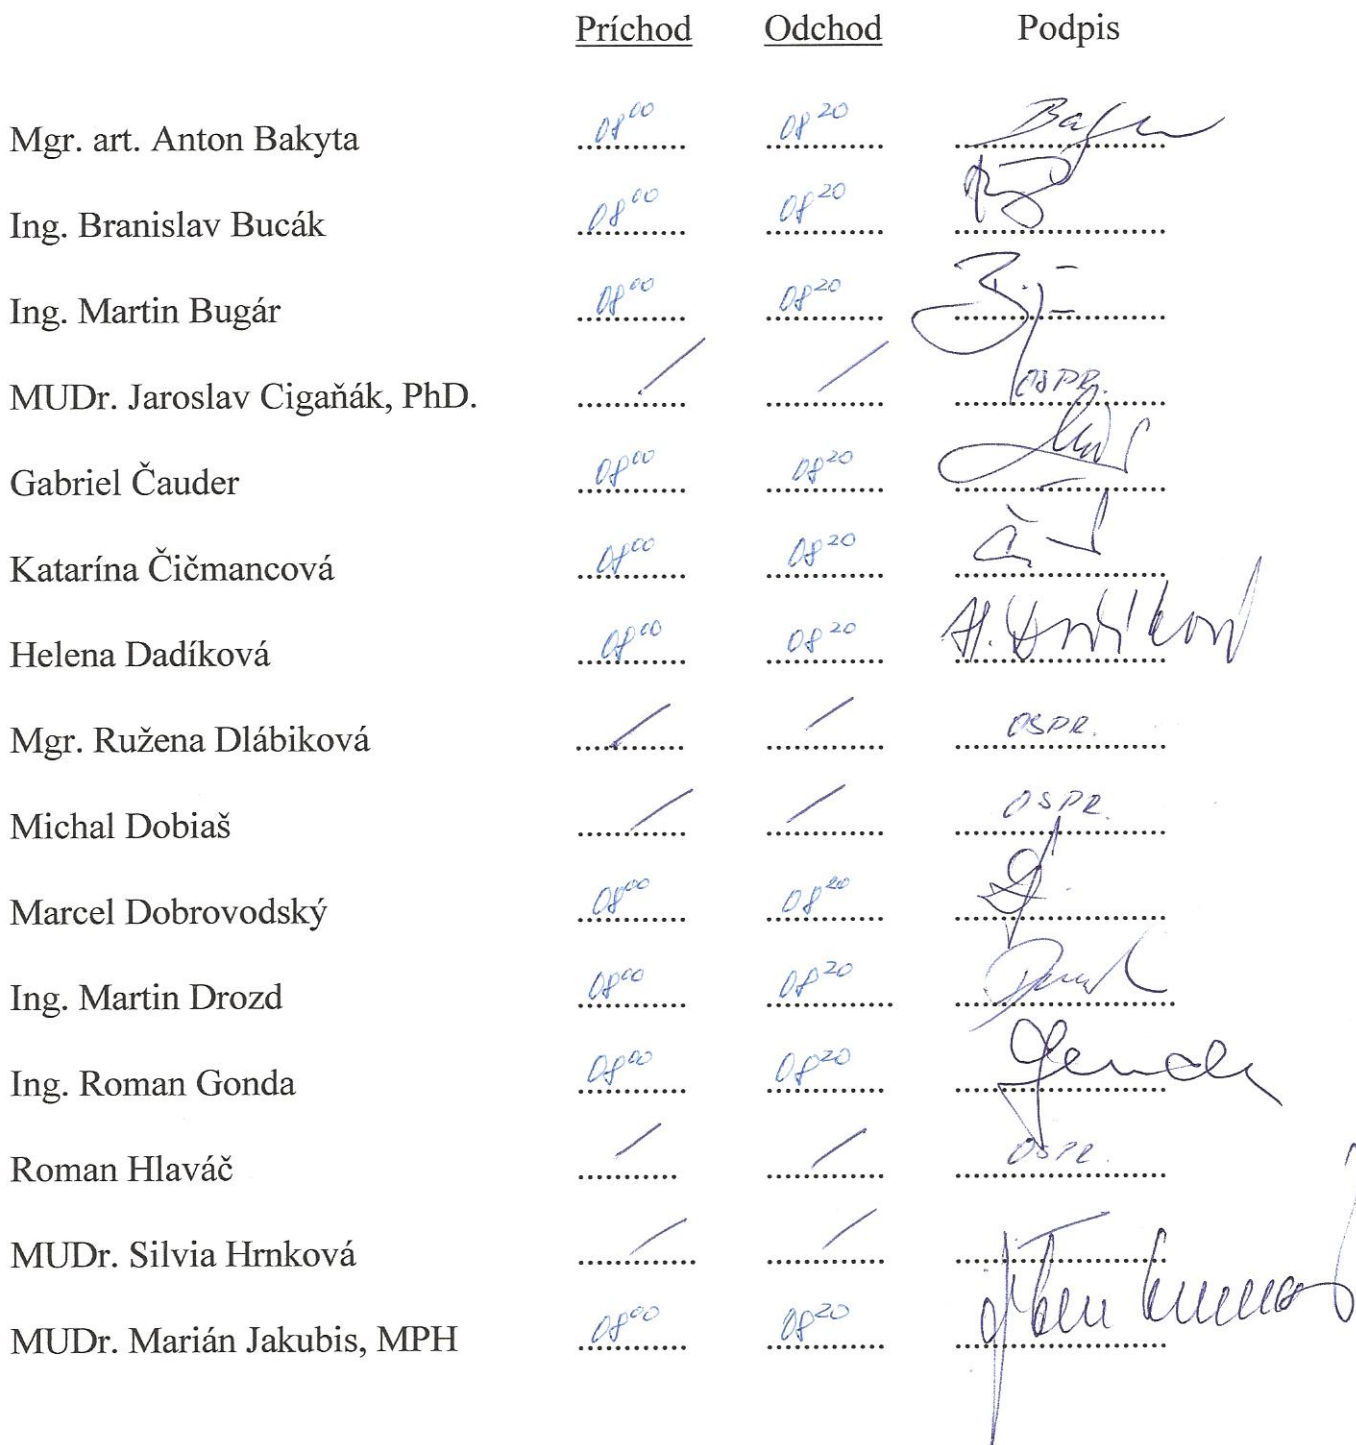 Príchod Odchod Podpis
Mgr. art. Anton Bakyta 08⁰⁰ 08²⁰
Ing. Branislav Bucák 08⁰⁰ 08²⁰
Ing. Martin Bugár 08⁰⁰ 08²⁰
MUDr. Jaroslav Cigaňák, PhD. / / OSPR.
Gabriel Čauder 08⁰⁰ 08²⁰
Katarína Čičmancová 08⁰⁰ 08²⁰
Helena Dadíková 08⁰⁰ 08²⁰ H. Dadíková
Mgr. Ružena Dlábiková / / OSPR.
Michal Dobiaš / / OSPR.
Marcel Dobrovodský 08⁰⁰ 08²⁰
Ing. Martin Drozd 08⁰⁰ 08²⁰
Ing. Roman Gonda 08⁰⁰ 08²⁰
Roman Hlaváč / / OSPR.
MUDr. Silvia Hrnková / / /
MUDr. Marián Jakubis, MPH 08⁰⁰ 08²⁰